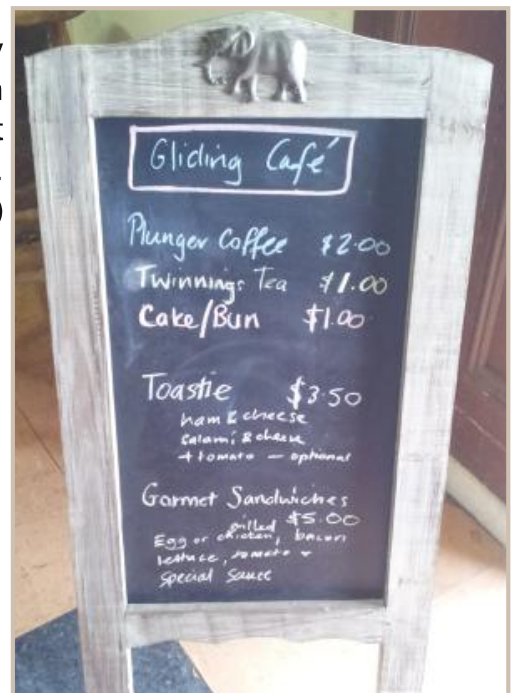 Gliding Café
Plunger Coffee $2.00
Twinnings Tea $1.00
Cake/Bun $1.00
Toastie $3.50
ham & cheese
salami & cheese
+ tomato – optional
Gormet Sandwiches
grilled $5.00
Egg or chicken, bacon
lettuce, tomato +
special sauce